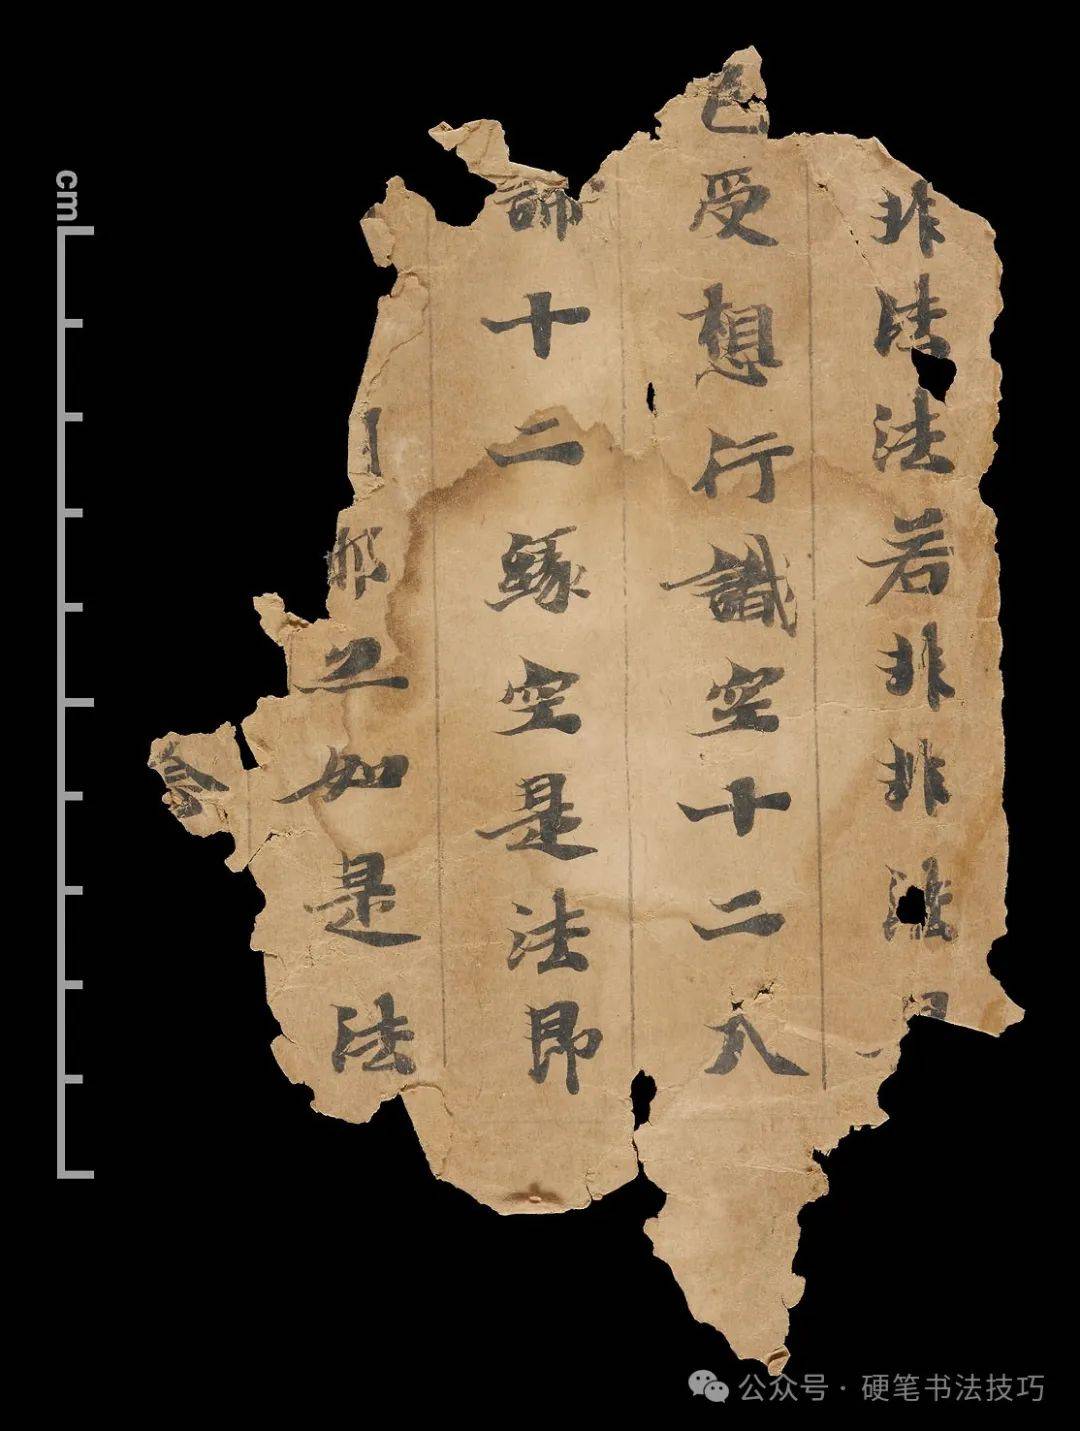 非法法若非非法
色受想行識空十二入
諦十二緣空是法即
之如是法
cm
公众号 · 硬笔书法技巧